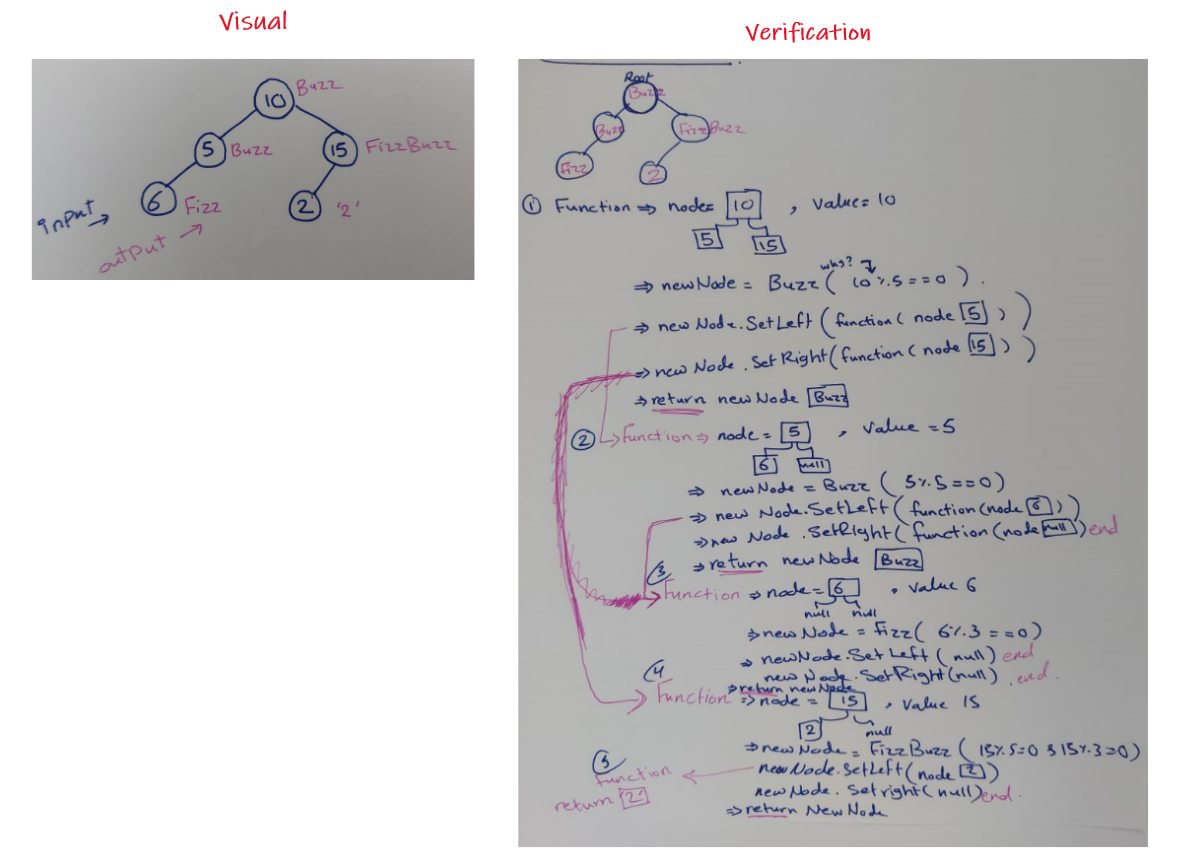 Visual
Verification
10 Buzz
5 Buzz
15 FizzBuzz
6 Fizz
2 '2'
input →
output →
Root
Buzz
Buzz
FizzBuzz
Fizz
2
① Function ⇒ node= 10 , value= 10
5 15
why?
⇒ newNode = Buzz( 10 %.5==0 ) .
⇒ new Node.SetLeft (function( node 5 ) )
⇒ new Node . Set Right(function( node 15 ) )
⇒ return newNode Buzz
② → Function ⇒ node = 5 , value =5
6 null
⇒ newNode = Buzz ( 5%.5==0)
⇒ new Node.SetLeft( function(node 6 ) )
⇒ new Node .SetRight( function(node null ) end
⇒ return newNode Buzz
③ Function ⇒ node= 6 , value 6
null null
⇒ newNode = Fizz( 6%.3 ==0)
⇒ newNode.SetLeft ( null) end
new Node.SetRight(null) .end.
⇒ return newNode
④ Function ⇒ node = 15 , value 15
2 null
⇒ newNode = FizzBuzz ( 15%.5=0 & 15%.3=0)
newNode.SetLeft( node 2 )
newNode. Setright( null) end.
⑤ function
return '2'
⇒ return NewNode